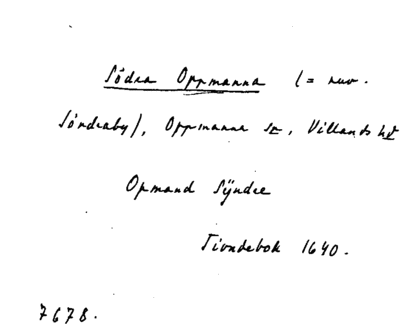 Södra Oppmanna (= nuv.
Söndraby), Oppmanna sn, Villands hd
Opmand Sÿndre
Tiondebok 1640.
7678.